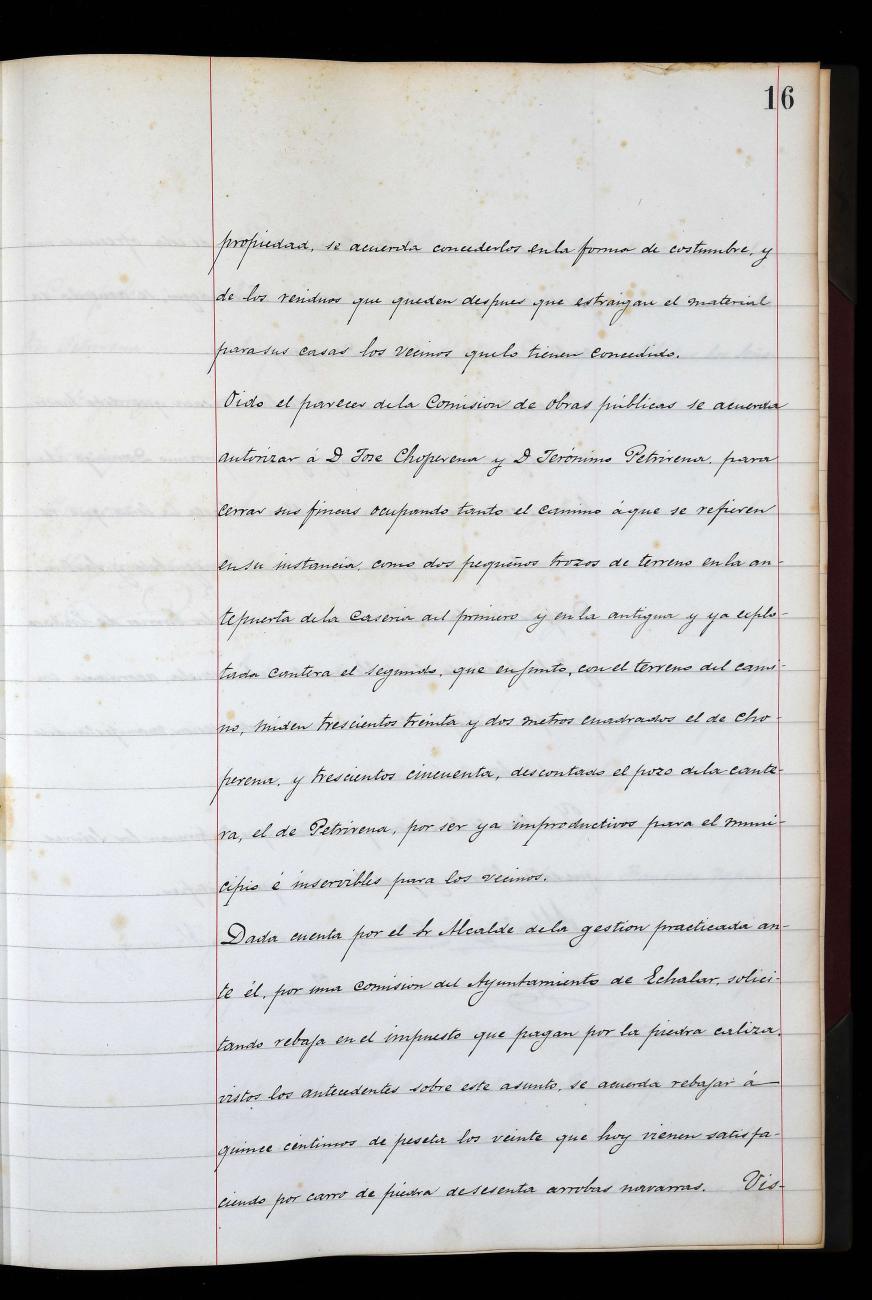 16
propiedad, se acuerda concederlos en la forma de costumbre, y
de los residuos que queden despues que estraigan el material
para sus casas los vecinos que lo tienen concedido.
Oido el parecer de la Comision de obras públicas se acuerda
autorizar á D José Choperena y D Jerónimo Petrirena, para
cerrar sus fincas ocupando tanto el camino á que se refieren
en su instancia, como dos pequeños trozos de terreno en la an-
tepuerta de la Caseria del primero y en la antigua y ya esplo-
tada Cantera el segundo, que en junto, con el terreno del cami-
no, miden trescientos treinta y dos metros cuadrados el de Cho-
perena, y trescientos cincuenta, descontado el pozo de la cante-
ra, el de Petrirena, por ser ya improductivos para el muni-
cipio é inservibles para los vecinos.
Dada cuenta por el Sr Alcalde de la gestion practicada an-
te él, por una Comision del Ayuntamiento de Echalar, solici-
tando rebaja en el impuesto que pagan por la piedra caliza,
vistos los antecedentes sobre este asunto, se acuerda rebajar á
quince centimos de peseta los veinte que hoy vienen satisfa-
ciendo por carro de piedra de sesenta arrobas navarras. Vis-